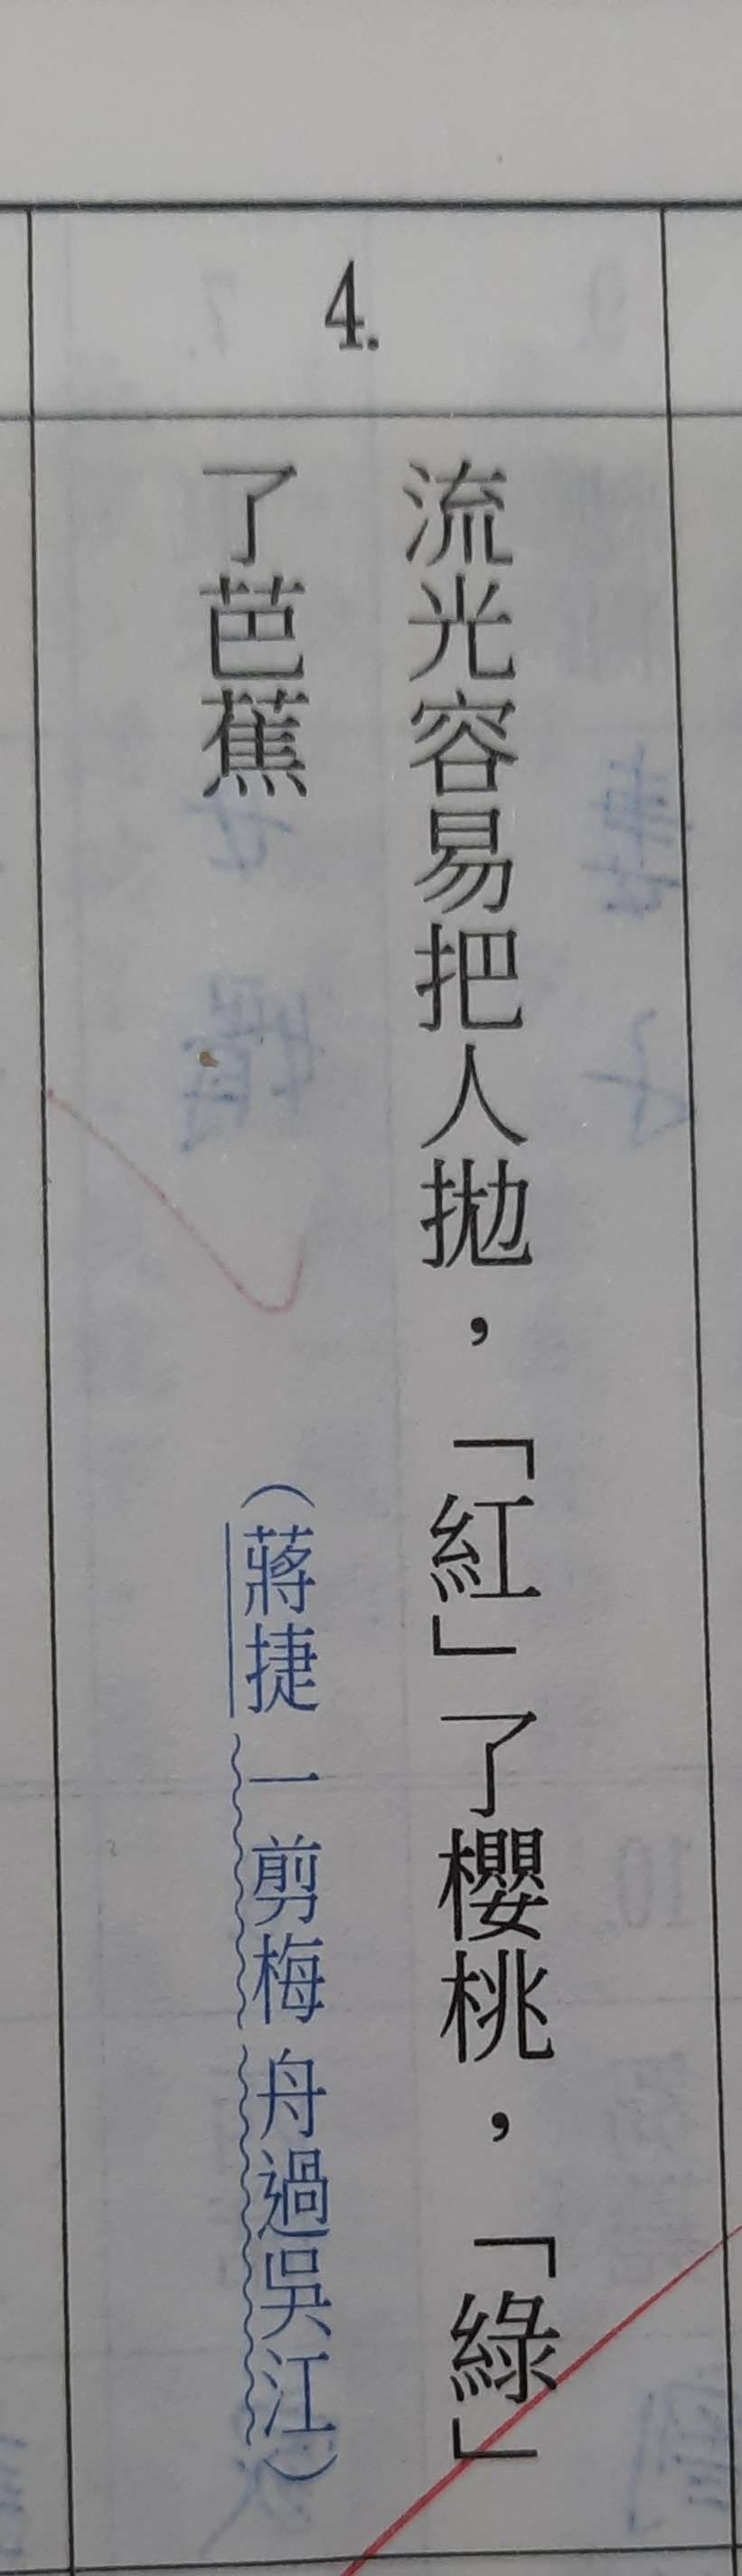 4.
流光容易把人拋，「紅」了櫻桃，「綠」
了芭蕉
（蔣捷一剪梅舟過吳江）